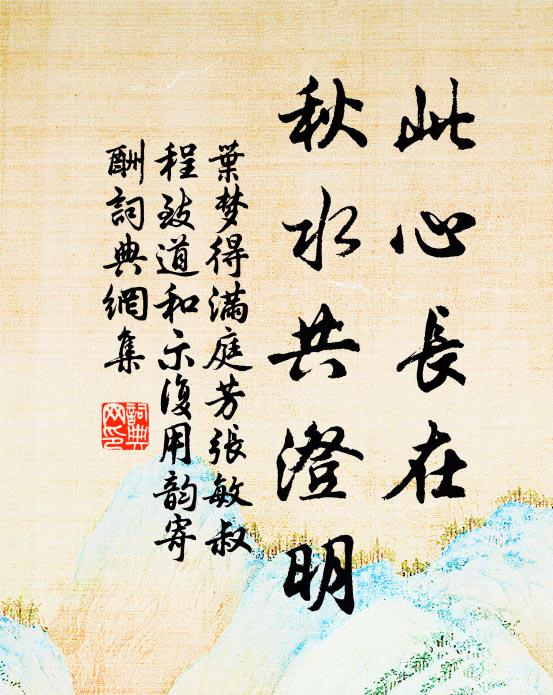 此心長在
秋水共澄明
葉梦得滿庭芳張敏叔
程致道和示復用韵寄
酬詞典網集
詞典
网印